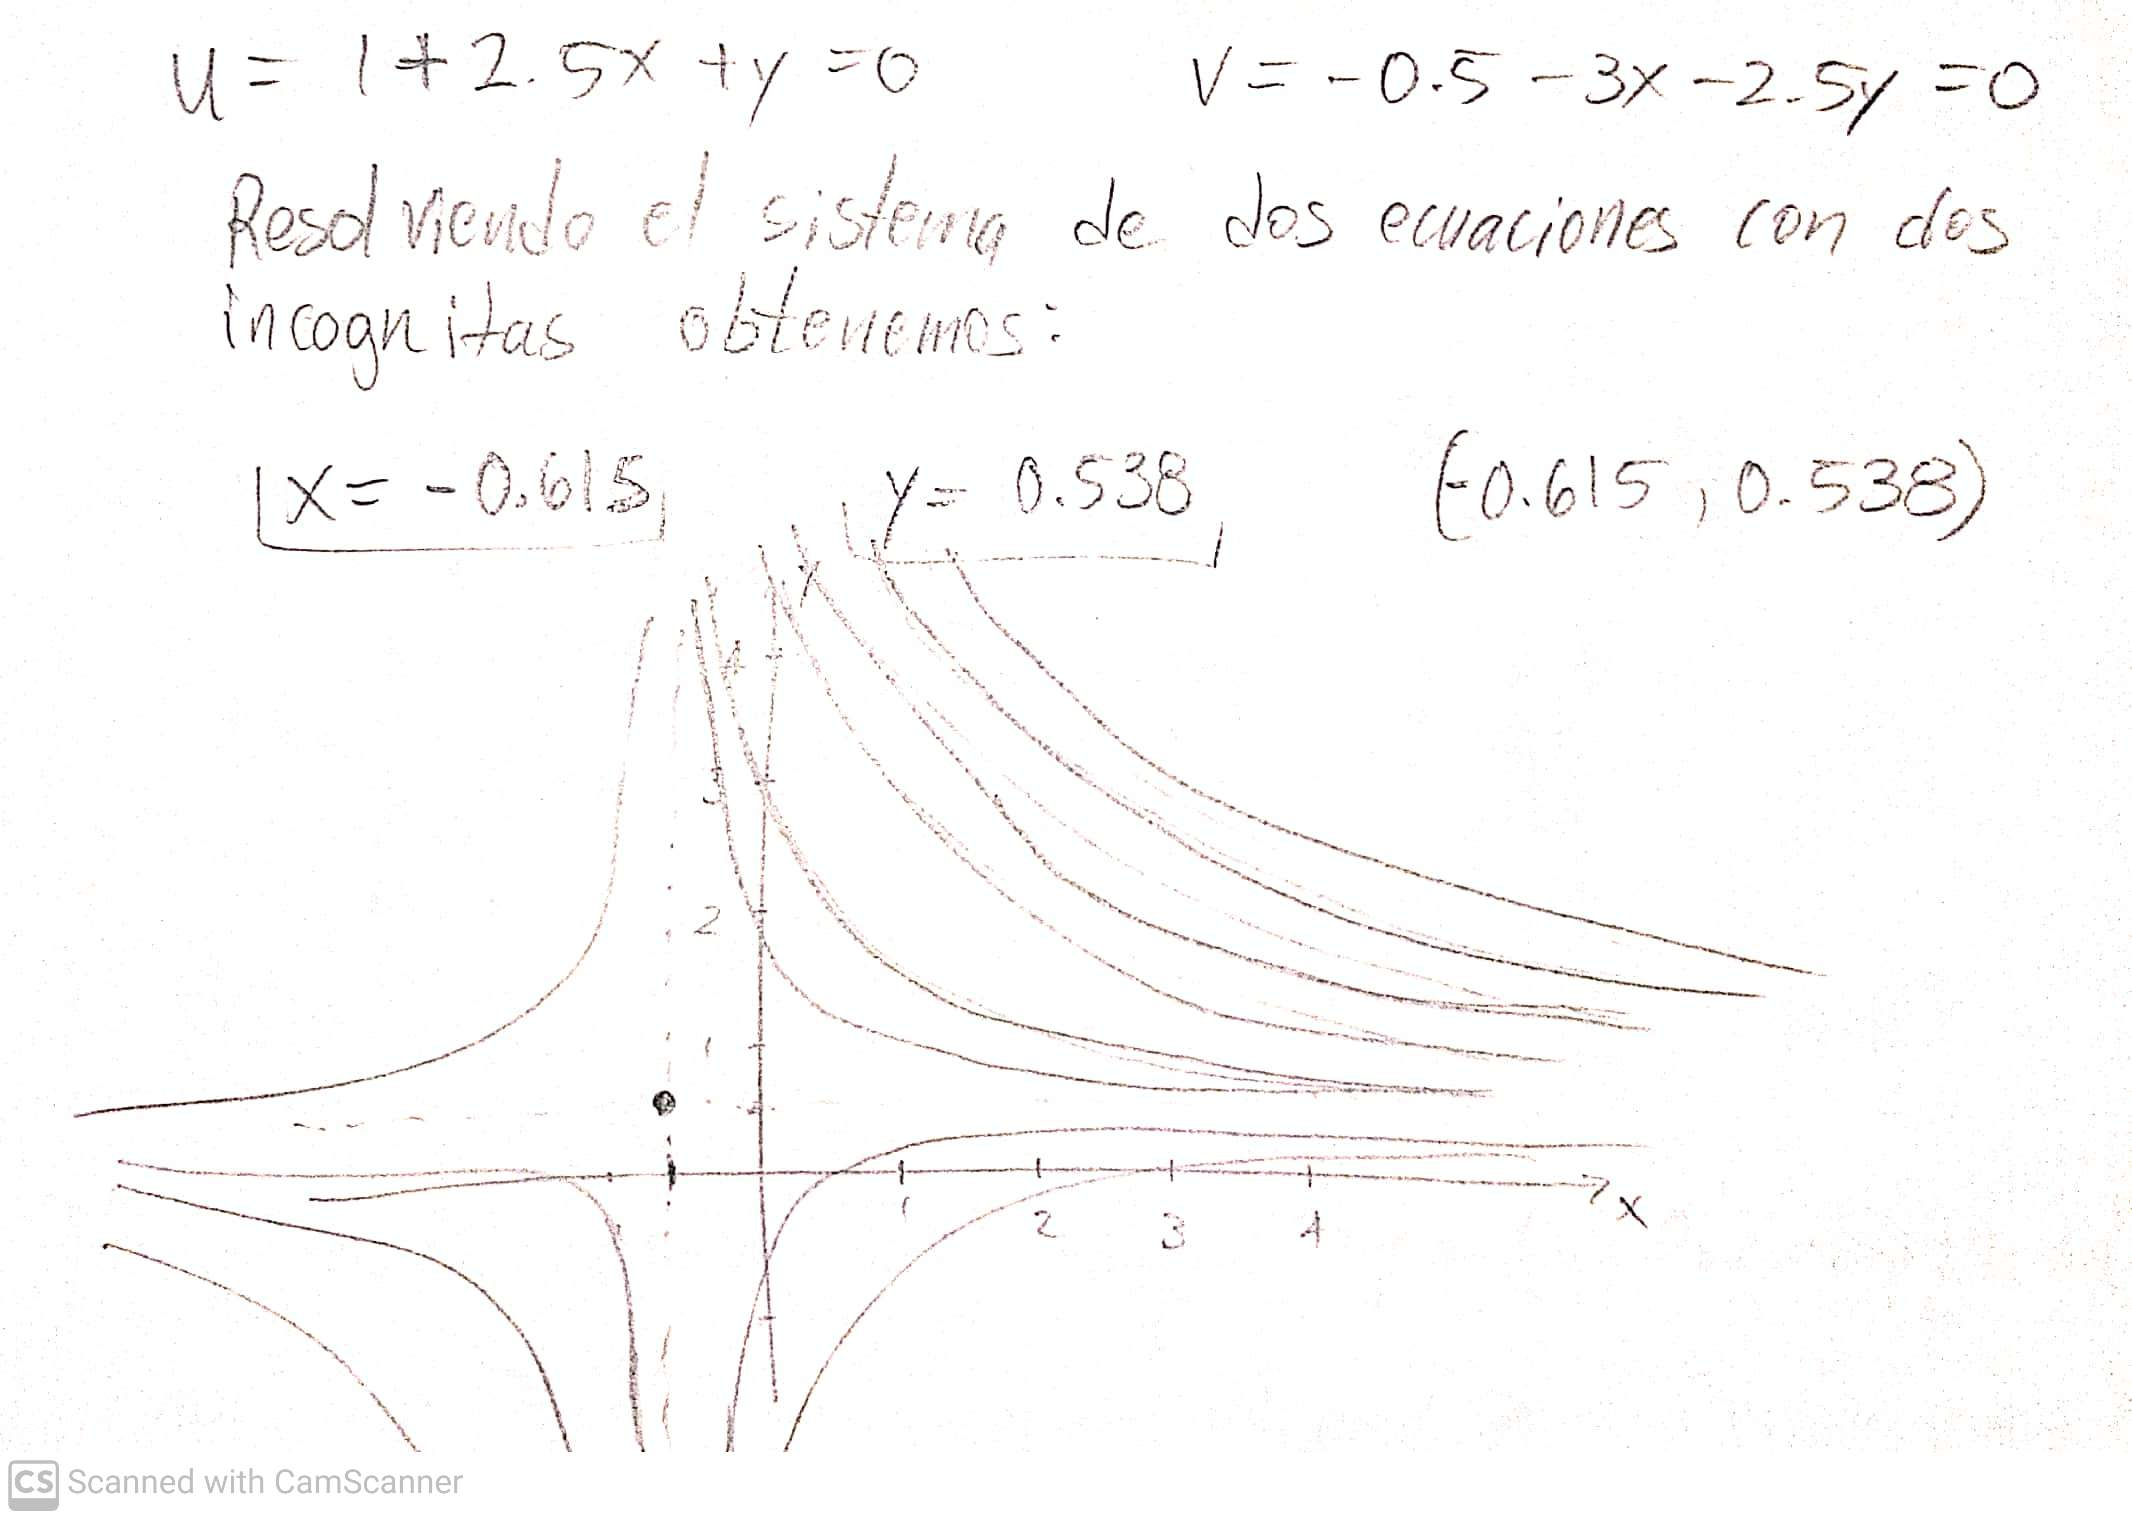 u = 1 + 2.5x + y = 0    v = -0.5 - 3x - 2.5y = 0
Resolviendo el sistema de dos ecuaciones con dos
incognitas obtenemos:
x = -0.615    y = 0.538    (-0.615, 0.538)
y
4
3
2
1
x
1 2 3 4
CS Scanned with CamScanner